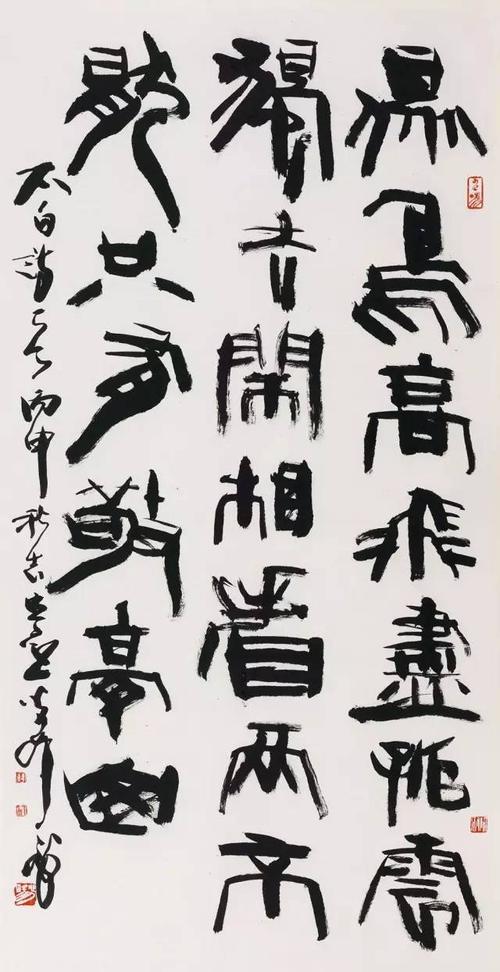 眾鳥高飛盡孤雲
獨去閑相看兩不
厭只有敬亭山
太白詩 丙申秋